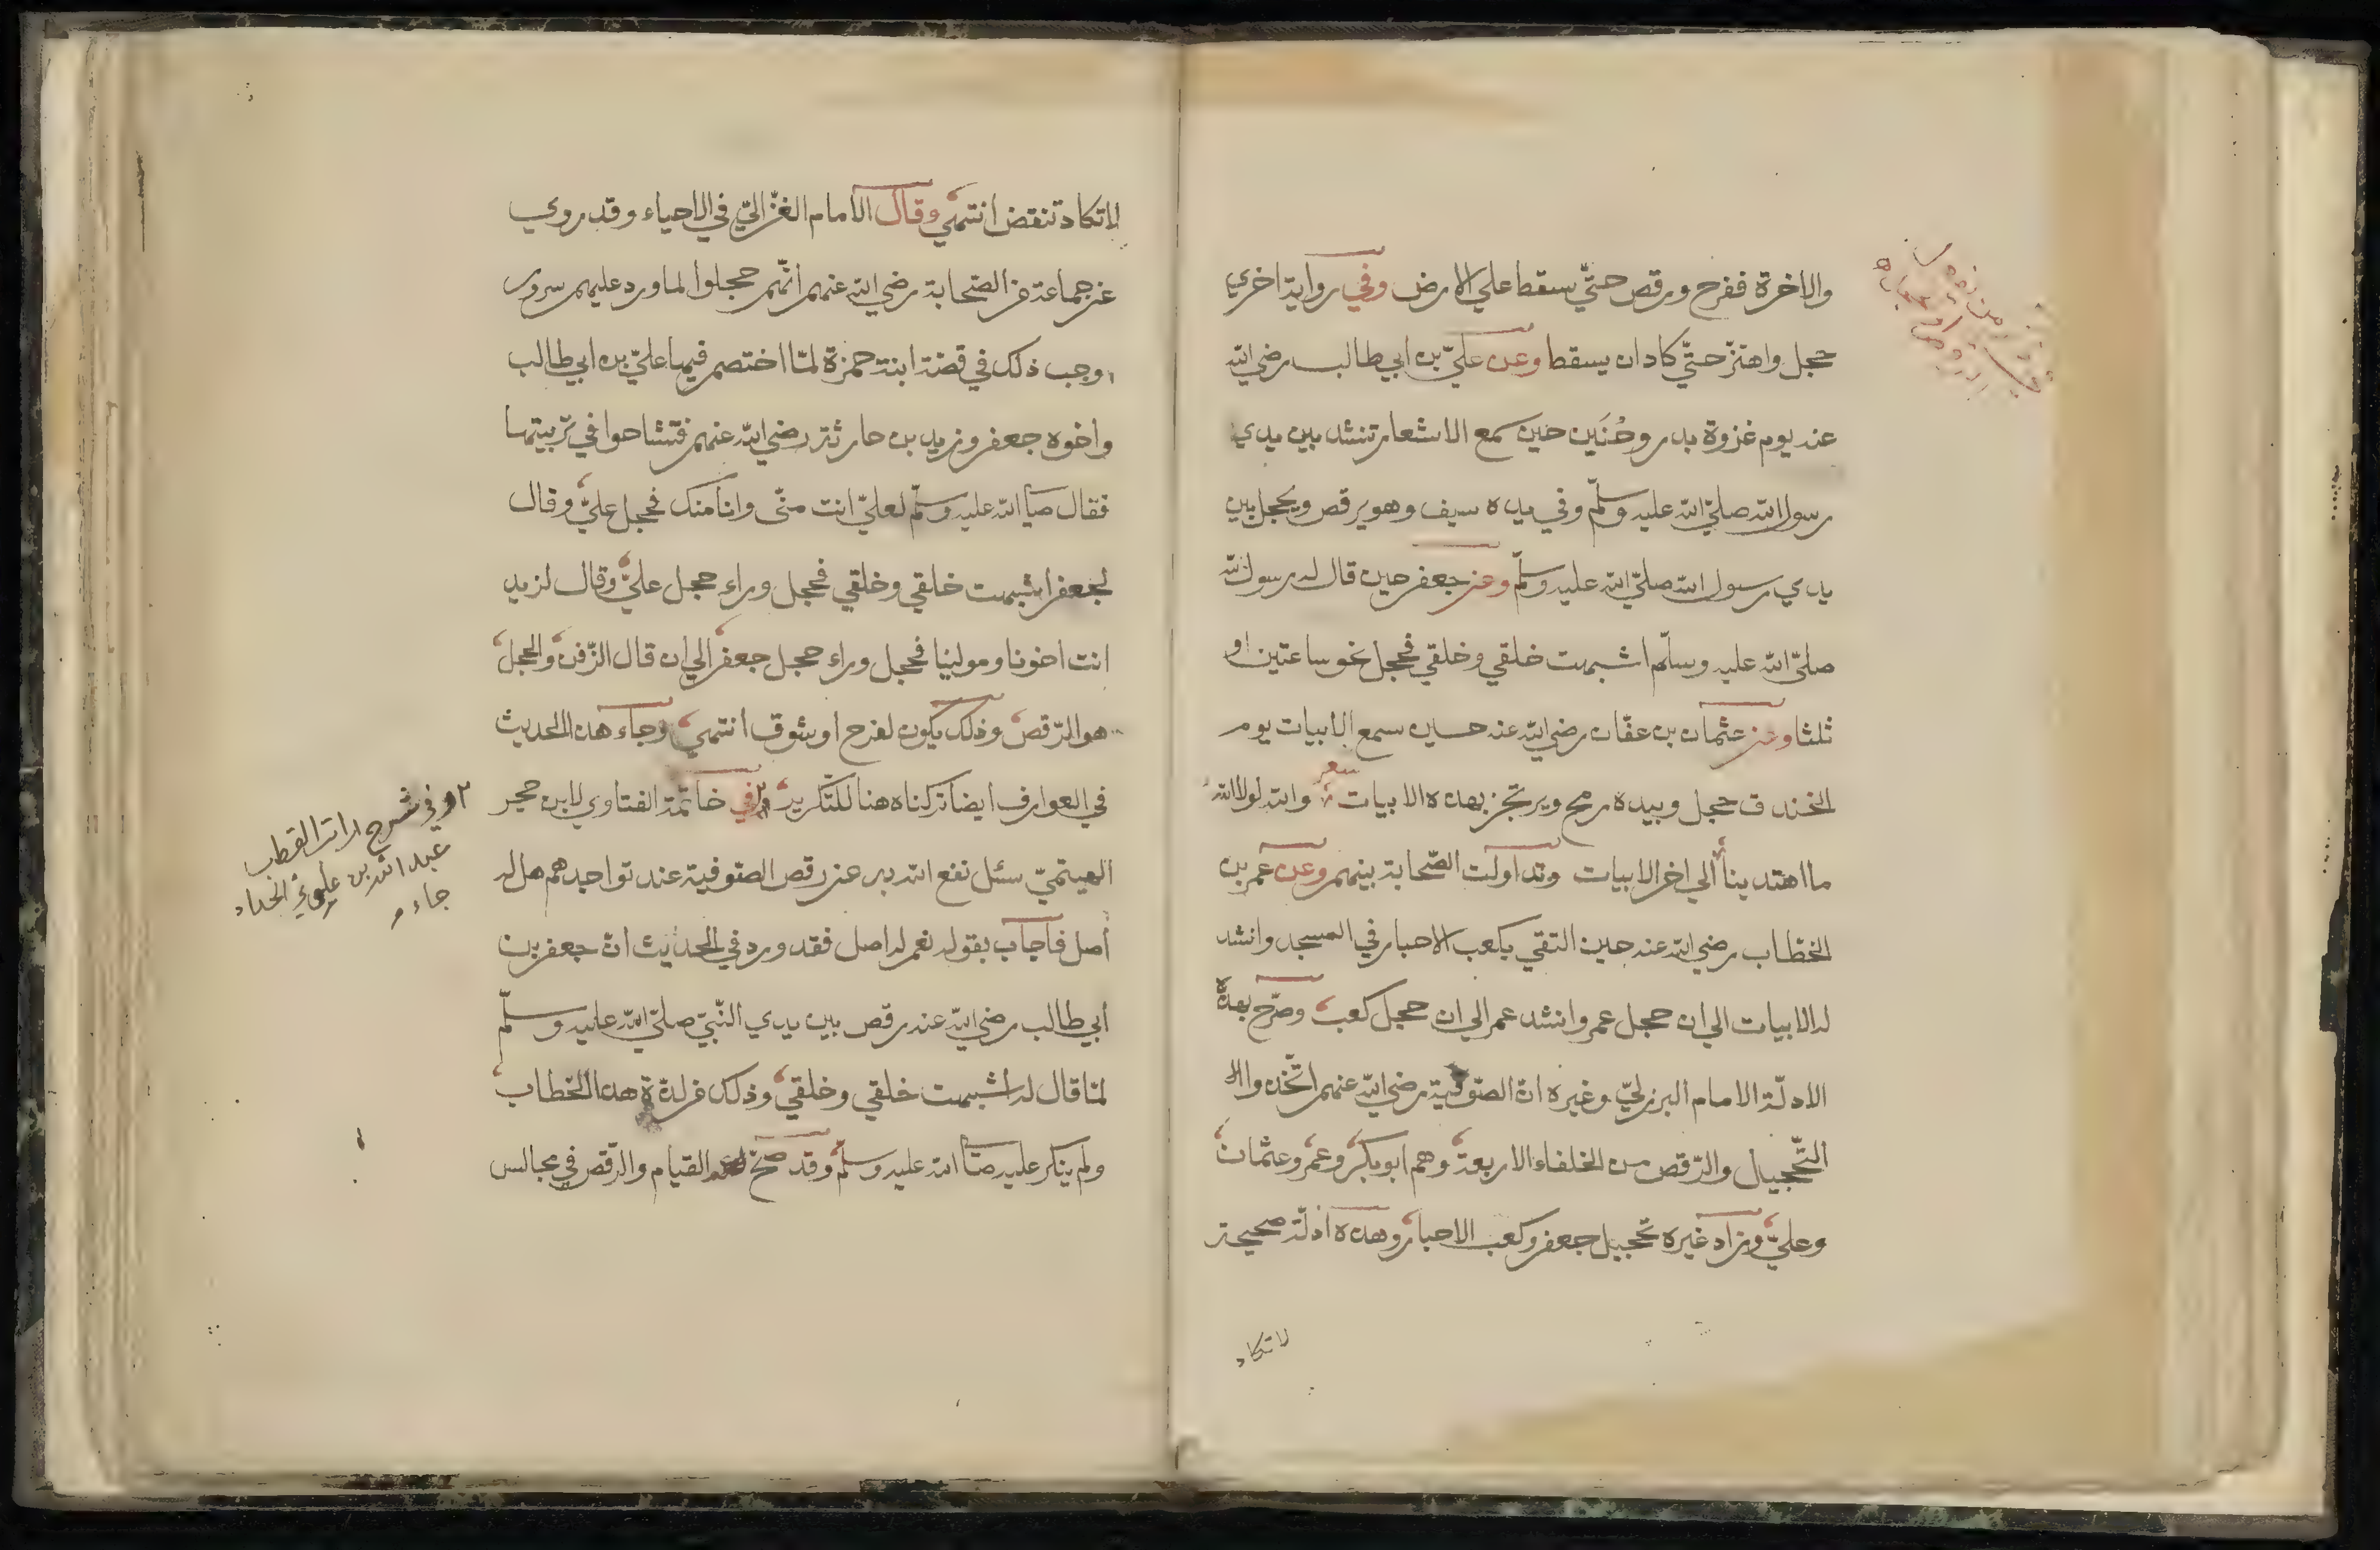 والاخرة ففرح ورقص حتّي سقط علي الارض وفي رواية اخري
حجل واهتزّ حتّي كاد ان يسقط وعن عليّ بن ابي طالب رضي الله
عنه يوم غزوة بدر وحُنَين حين سمع الاشعار تنشد بين يدي
رسول الله صلّي الله عليه وسلّم وفي يده سيف وهو يرقص ويحجل بين
يدي رسول الله صلّي الله عليه وسلّم وعن جعفر حين قال له رسول الله
صلّي الله عليه وسلّم اشبهت خلقي وخلقي فحجل نحو ساعتين او
ثلثا وعن عثمان بن عفّان رضي الله عنه حين سمع الابيات يوم
الخندق حجل وبيده رمح ويرتجز بهذه الابيات شعر والله لولا الله
ما اهتدينا الي اخر الابيات وتداولت الصّحابة بينهم وعن عمر بن
الخطّاب رضي الله عنه حين التقي بكعب الاحبار في المسجد وانشد
له الابيات الي ان حجل عمر وانشد عمر الي ان حجل كعب وصرّح بهذه
الادلّة الامام البرزليّ وغيره انّ الصّوفية رضي الله عنهم اتّخذوا
التّحجيل والرّقص من الخلفاء الاربعة وهم ابو بكر وعمر وعثمان
وعليّ وزاد غيره تحجيل جعفر وكعب الاحبار وهذه ادلّة صحيحة
لا تكاد
لا تكاد تنقض انتهي وقال الامام الغزّاليّ في الاحياء وقد روي
عن جماعة من الصّحابة رضي الله عنهم انّهم حجلوا لما ورد عليهم سرور
اوجب ذلك في قصّة ابنة حمزة لمّا اختصم فيها عليّ بن ابي طالب
واخوه جعفر وزيد بن حارثة رضي الله عنهم فتشاحوا في تربيتها
فقال صلي الله عليه وسلّم لعليّ انت منّي وانا منك فحجل عليّ وقال
لجعفر اشبهت خلقي وخلقي فحجل وراء حجل عليّ وقال لزيد
انت اخونا ومولينا فحجل وراء حجل جعفر الي ان قال الزّفن والحجل
هو الرّقص وذلك يكون لفرح او شوق انتهي وجاء هذا الحديث
في العوارف ايضا تركناه هنا للتّكرير وفي خاتمة الفتاوي لابن حجر
الهيتميّ سئل نفع الله به عن رقص الصّوفية عند تواجدهم هل له
أصل فاجاب بقوله نعم له اصل فقد ورد في الحديث انّ جعفر بن
أبي طالب رضي الله عنه رقص بين يدي النّبيّ صلّي الله عليه وسلّم
لمّا قال له اشبهت خلقي وخلقي وذلك من لذّة هذا الخطاب
ولم ينكر عليه صلي الله عليه وسلّم وقد صحّ القيام والرّقص في مجالس
وفي شرح راتب القطب
عبد الله بن علوي الحداد
جاء